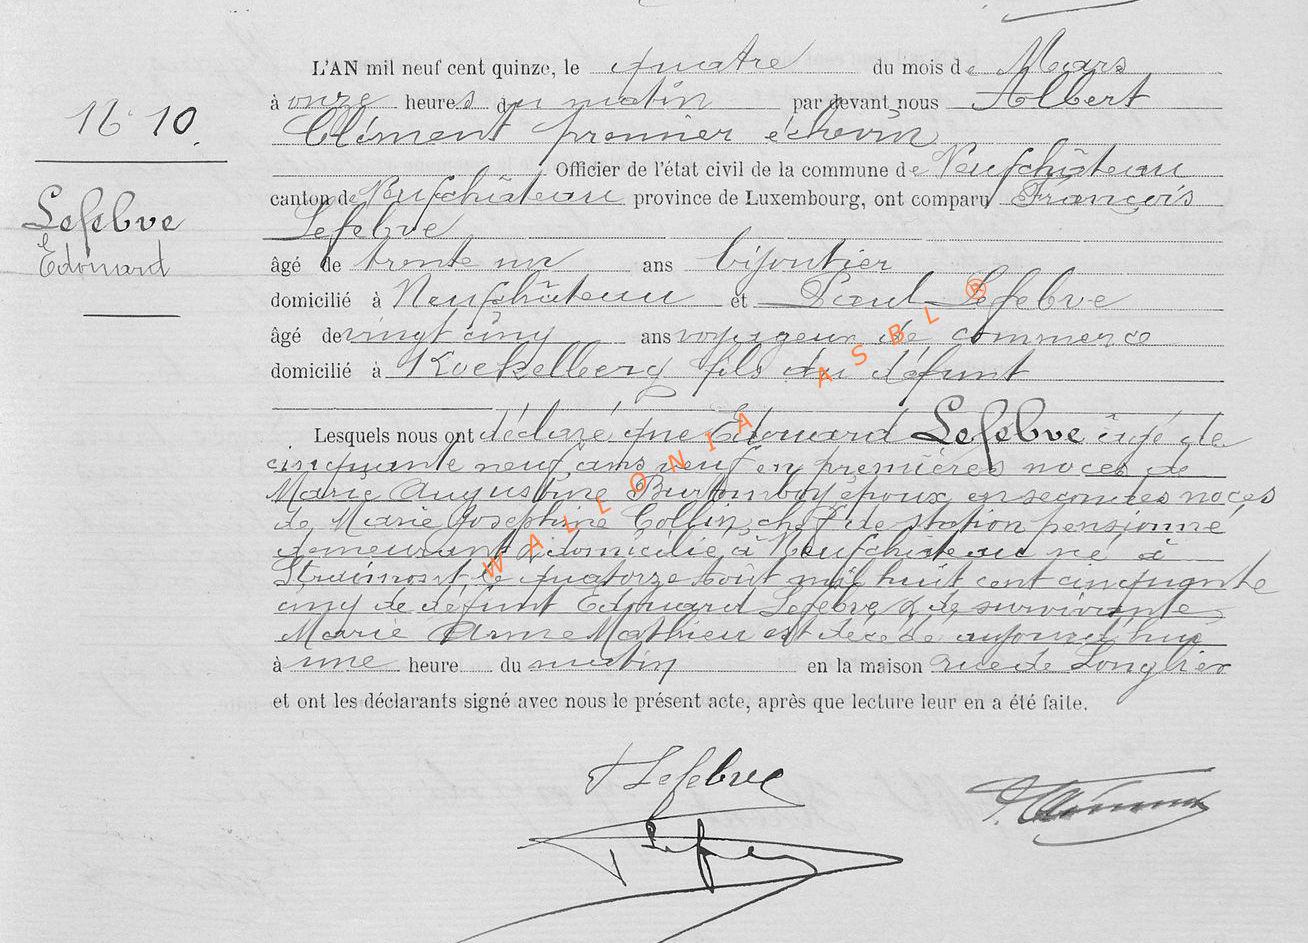 L'AN mil neuf cent quinze, le quatre du mois de Mars
N° 10.
à onze heures du matin par devant nous Albert
Clément premier échevin
Officier de l'état civil de la commune de Neufchâteau
canton de Neufchâteau province de Luxembourg, ont comparu François
Lefebvre
Lefebve
Edouard
âgé de trente un ans bijoutier
domicilié à Neufchâteau et Paul Lefebve
âgé de vingt cinq ans voyageur de commerce
domicilié à Koekelberg fils du défunt
Lesquels nous ont déclaré que Edouard Lefebve âgé de
cinquante neuf ans veuf en premières noces de
Marie Augustine Burtomboy époux en secondes noces
de Marie Josephine Collin, chef de station pensionné
demeurant & domicilié à Neufchâteau né à
Straimont, le quatorze août mil huit cent cinquante
cinq de défunt Edouard Lefebve & de survivante
Marie Anne Mathieu est décédé aujourd'hui
à une heure du matin en la maison rue de Longlier
et ont les déclarants signé avec nous le présent acte, après que lecture leur en a été faite.
F Lefebve
A. Clément
P Lefe
WALLONIA ASBL ®